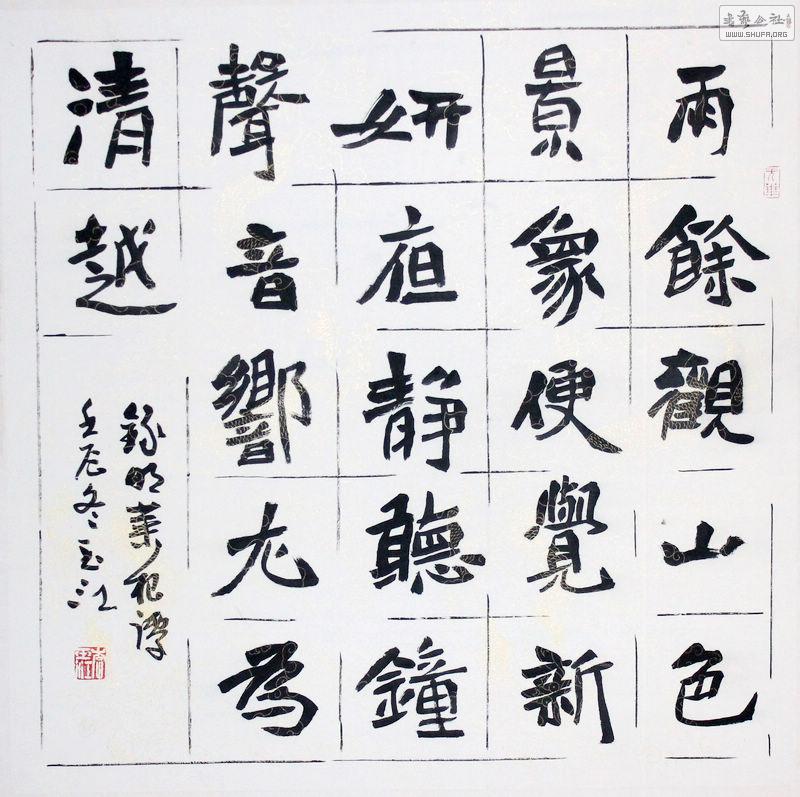 雨餘觀山色
景象便覺新
妍夜靜聽鐘
聲音響尤為
清越
錄明菜根譚
壬辰冬玉江
书艺公社
WWW.SHUFA.ORG